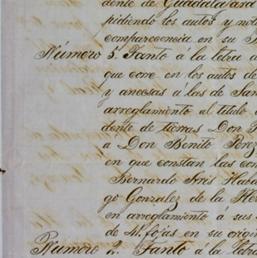 dente de Guadalaxara
pidiendo los autos y not
comparecencia en su
Número 3. Tanto á la letra d
que corre en los autos de
y anecsas á las de San
arreglamento al titulo
dente de tierras Don P
a Don Benito Perez
en que constan las con
Bernardo Inés Haba
go Gonzalez de la Her
en arreglamento a sus
de 41. fojas en su origin
Número 2. Tanto á la letra